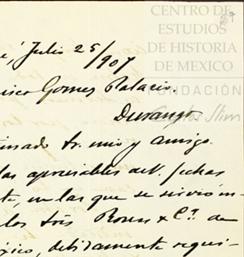 CENTRO DE
ESTUDIOS
DE HISTORIA
DE MEXICO
FUNDACIÓN
Carlos Slim
Julio 25/907
isco Gomez Palacio.
Durango
imado Sr. mio y amigo.
las apreciables de V. fechas
te, en las que se sirvió in
los Srs Rosen & Cª. de
xico, debidamente requi-